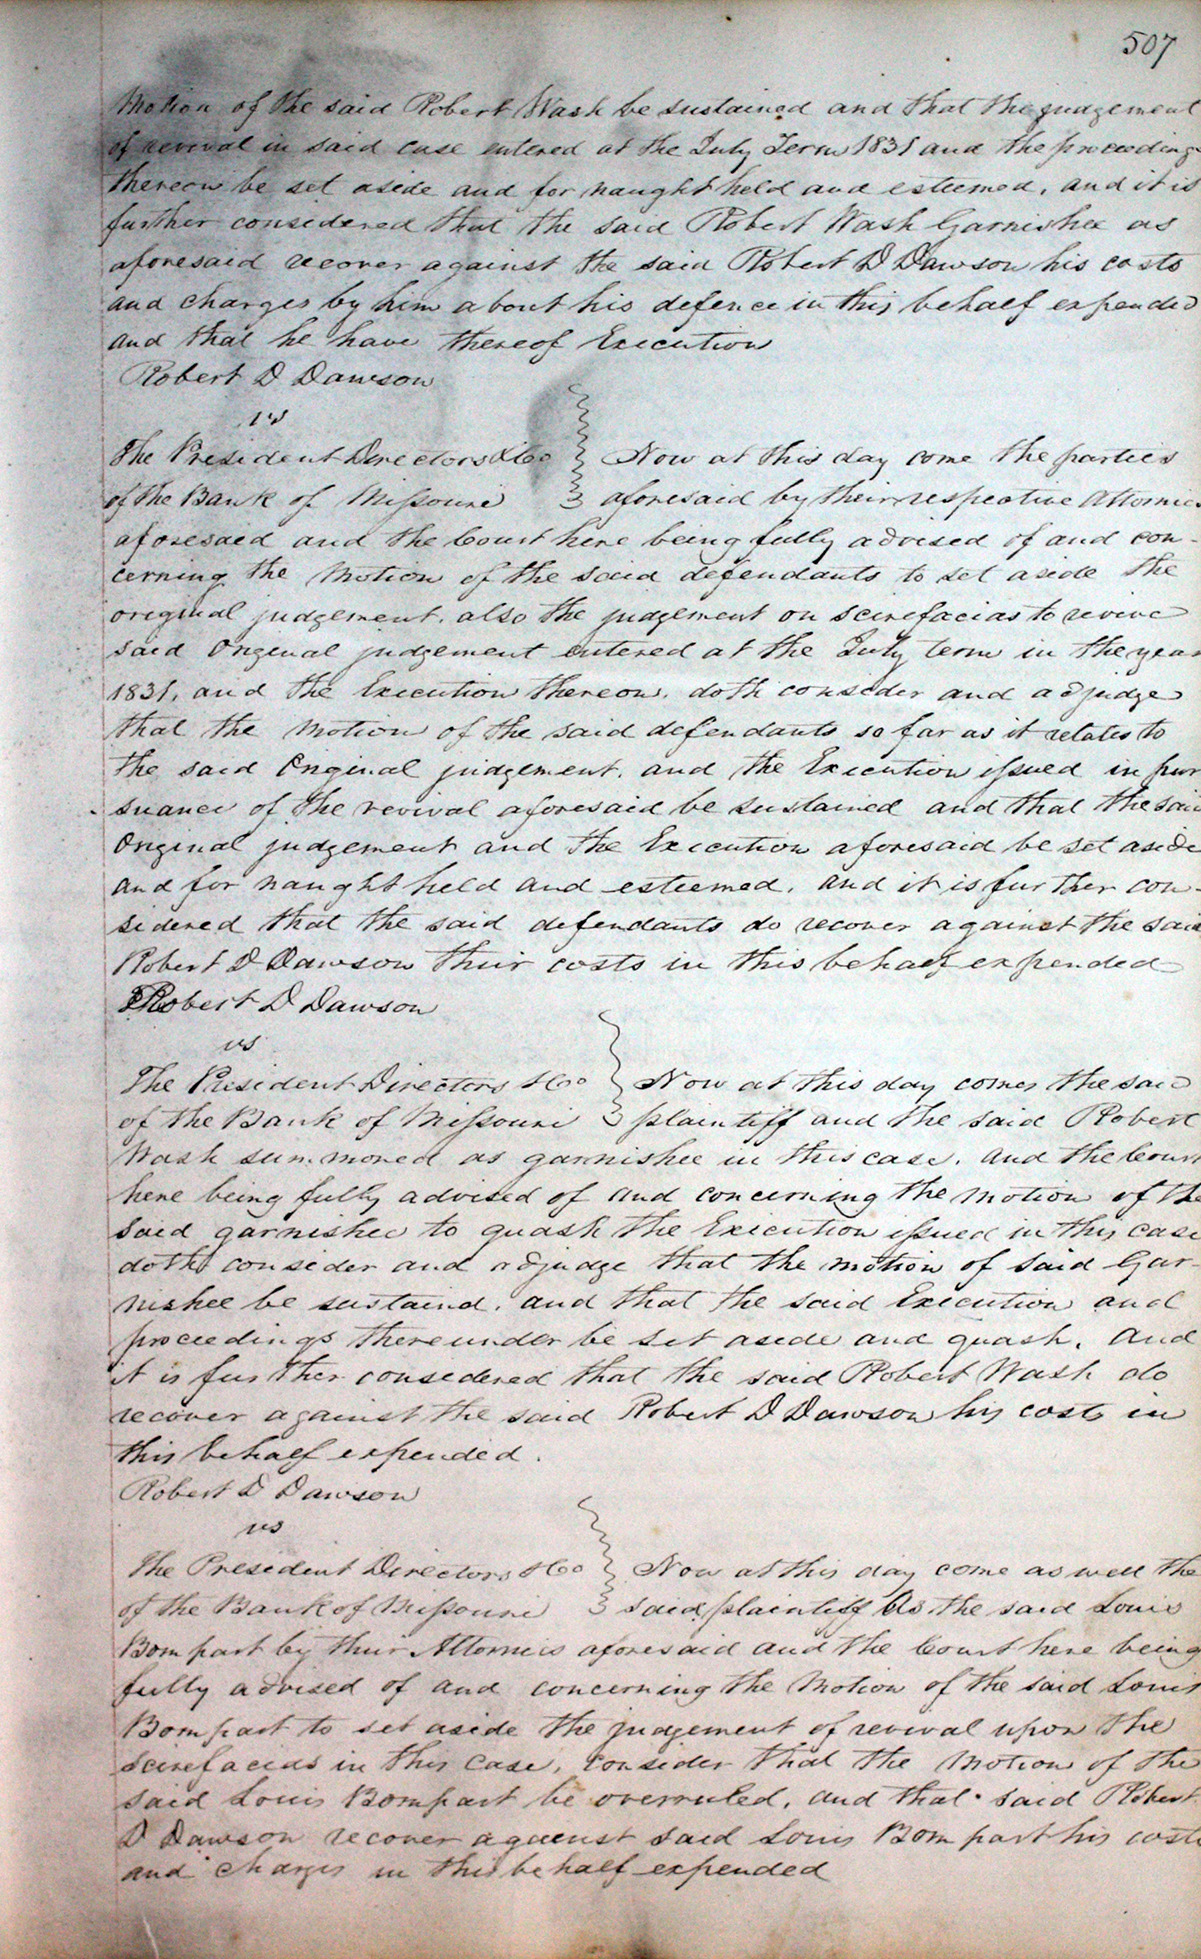 507
Motion of the said Robert Wash be sustained and that the judgement
of revival in said case entered at the July Term 1831 and the proceedings
thereon be set aside and for naught held and esteemed, and it is
further considered that the said Robert Wash Garnishee as
aforesaid recover against the said Robert D Dawson his costs
and charges by him about his defence in this behalf expended
and that he have thereof Execution
Robert D Dawson
vs
The President Directors &Co Now at this day come the parties
of the Bank of Missouri aforesaid by their respective Attornies
aforesaid and the Court here being fully advised of and con-
cerning the Motion of the said defendants to set aside the
original judgement, also the judgement on scirefacias to revive
said Original judgement entered at the July term in the year
1831, and the Execution thereon, doth consider and adjudge
that the Motion of the said defendants so far as it relates to
the said Original judgement, and the Execution issued in pur
suance of the revival aforesaid be sustained and that the said
Original judgement and the Execution aforesaid be set aside
and for naught held and esteemed, and it is further con-
sidered that the said defendants do recover against the said
Robert D Dawson their costs in this behalf expended
Robert D Dawson
vs
The President Directors &Co Now at this day comes the said
of the Bank of Missouri plaintiff and the said Robert
Wash summoned as garnishee in this case, and the Court
here being fully advised of and concerning the Motion of the
said garnishee to quash the Execution issued in this case
doth consider and adjudge that the motion of said Gar-
nishee be sustaind, and that the said Execution and
proceedings thereunder be set aside and quash, and
it is further considered that the said Robert Wash do
recover against the said Robert D Dawson his costs in
this behalf expended.
Robert D Dawson
vs
The President Directors &Co Now at this day come as well the
of the Bank of Missouri said plaintiff as the said Louis
Bompart by their Attornies aforesaid and the Court here being
fully advised of and concerning the Motion of the said Louis
Bompart to set aside the judgement of revival upon the
scirefacias in this case, consider that the Motion of the
said Louis Bompart be overruled, and that said Robert
D Dawson recover against said Louis Bompart his costs
and charges in this behalf expended